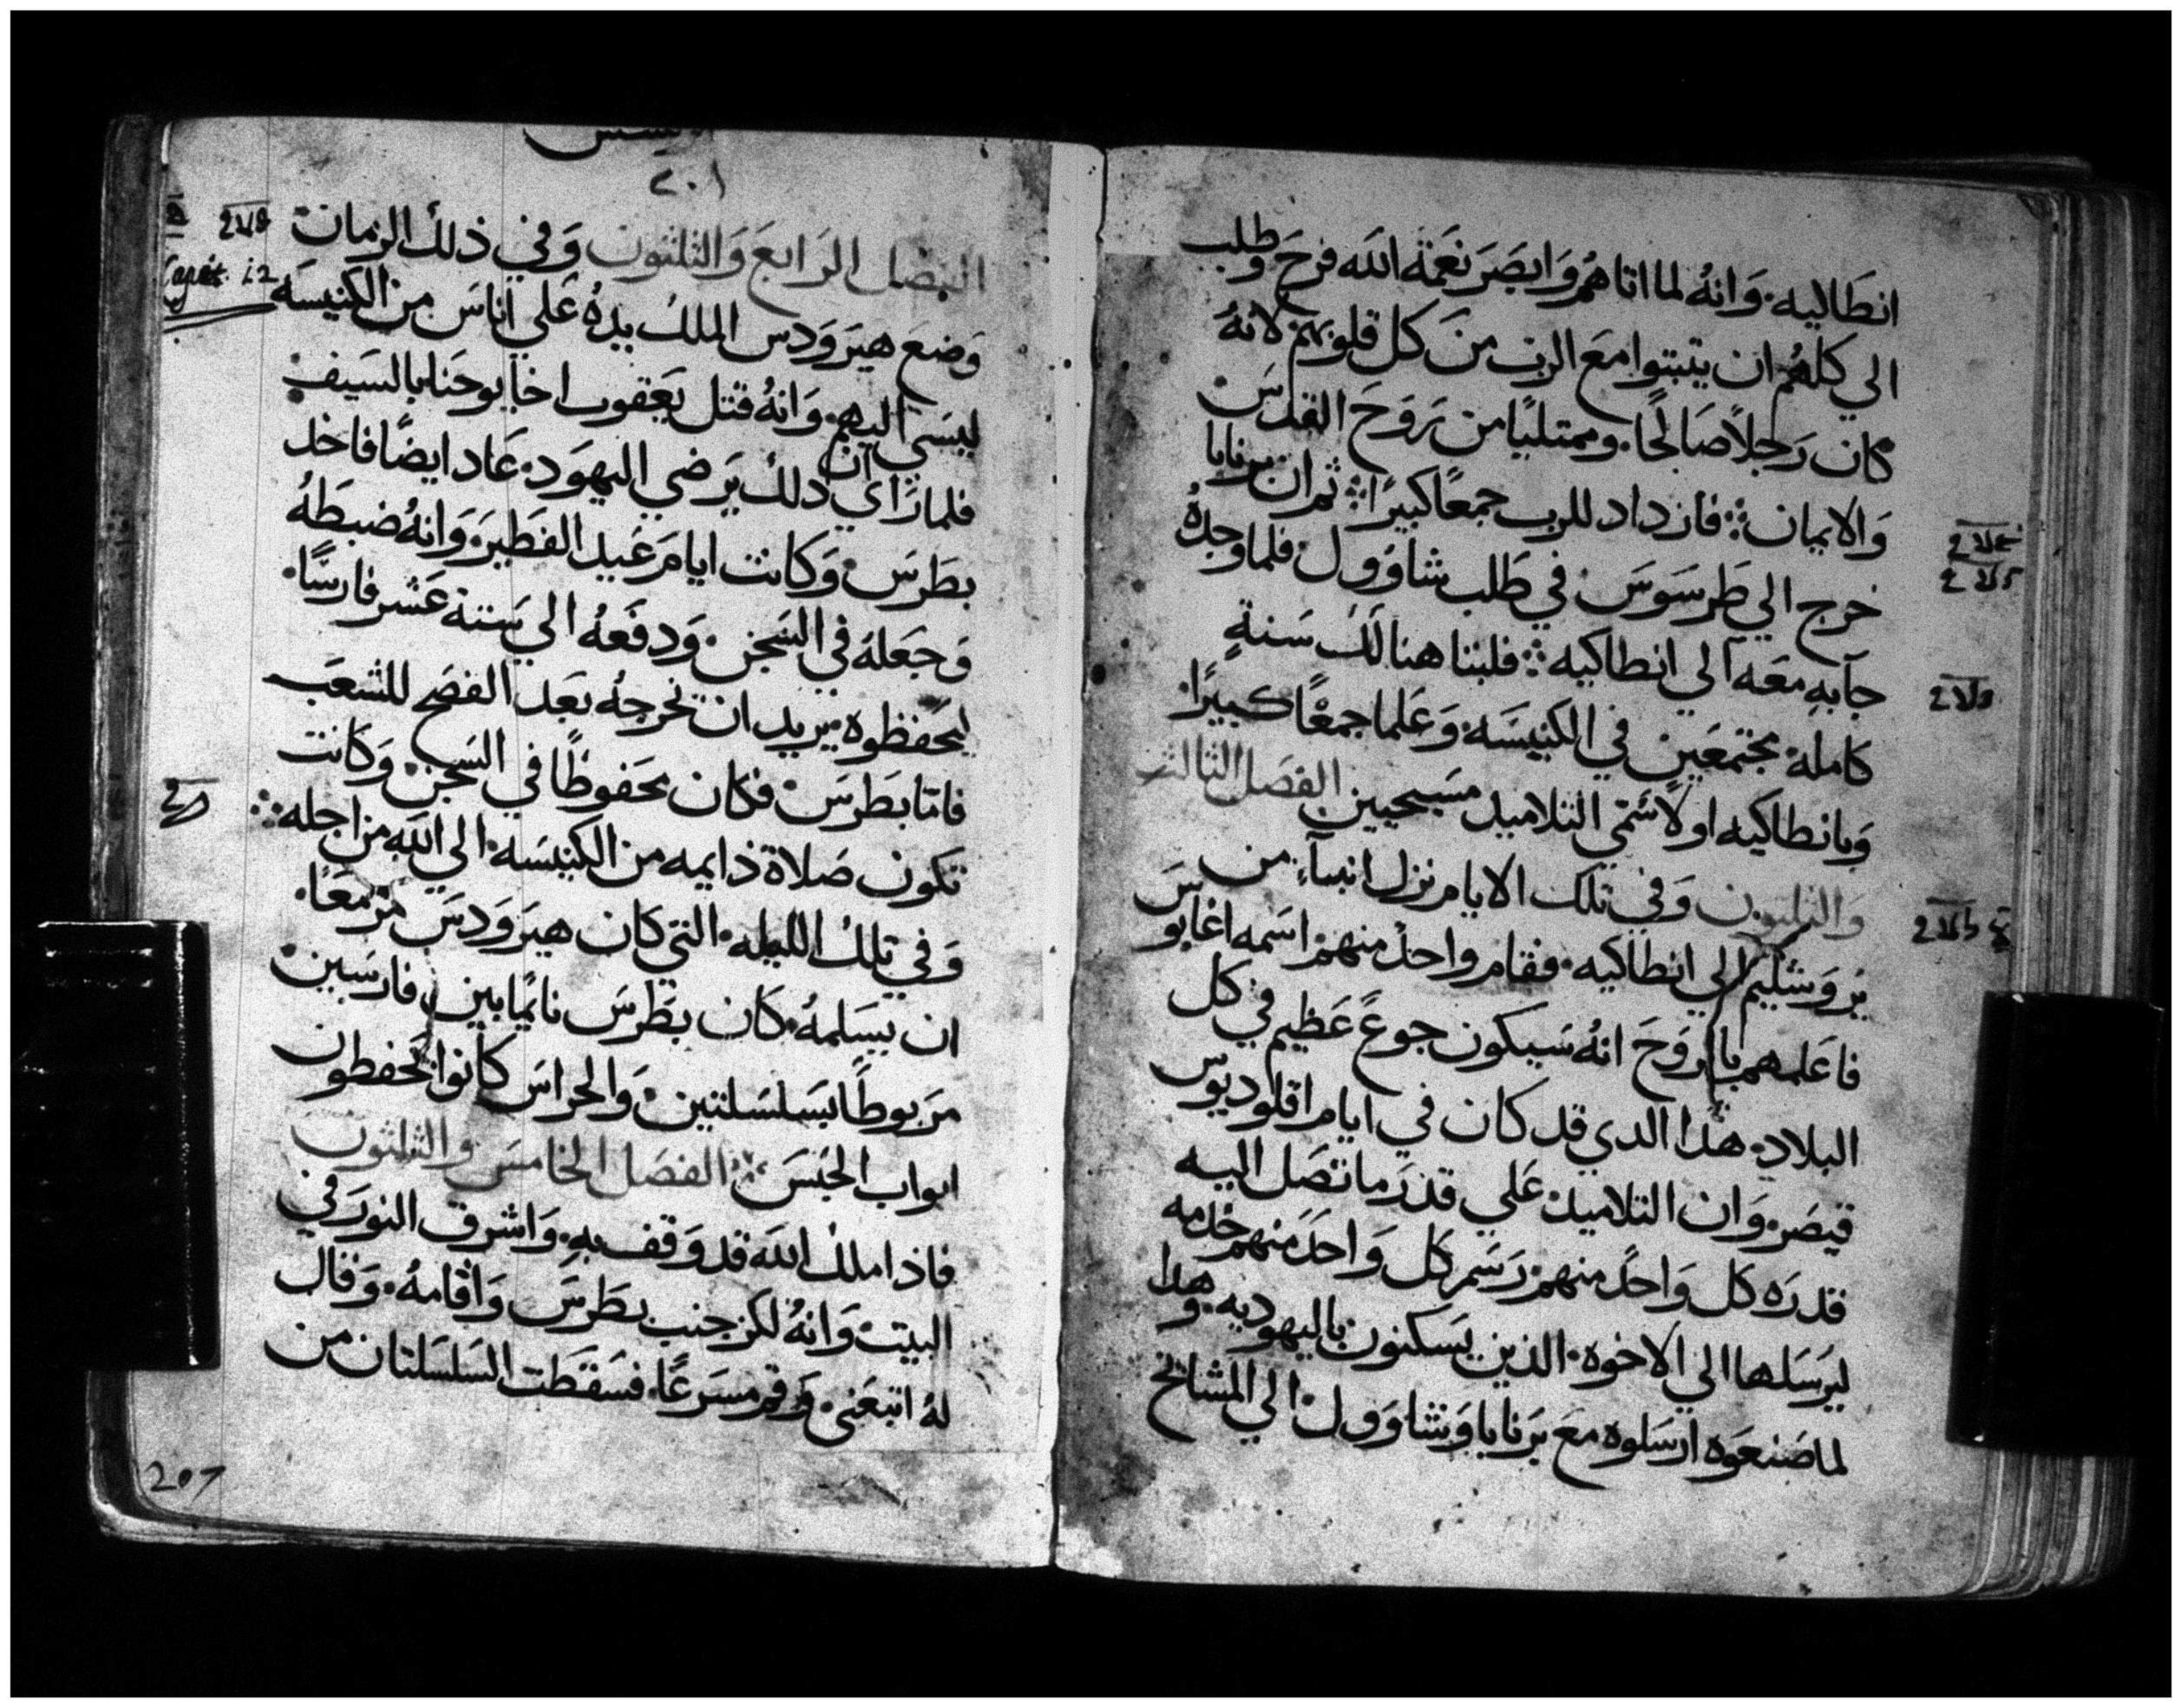 انطاليه. وَانهُ لما اتاهُم وَابصَرَ نعَمَة الله فرحَ وَطلب
الي كلهُم ان يثبتوا معَ الرب منَ كل قلوبهم لانهُ
كان رَجلاً صَالحًا. وممتليًا من رَوحَ القدسَ
وَالايمان فازداد للرب جمعًا كبيرًا ثم ان برنابا
خرج الي طَرسَوسَ في طَلب شاوَول. فلما وجدهُ
جآ بهِ معَه الي انطاكيه فلبثا هنالك سَنةٍ
كامله مجتمعَين في الكنيسَه. وَعَلما جمعًا كبيرًا.
وَبانطاكيه اولاً سَمّي التلاميد مسَيحيين الفصَل الثالث
وَالثلثون وَفي تلك الايام نزل انبيآء من
يرَوَشليم الي انطاكيه. فقام واحدً منهم اسَمه اغابوسَ
فاعَلمهم بالرَوحَ انهُ سَيكون جوعً عَظيم في كل
البلاد. هذا الدي قد كان في ايام اقلوديوس
قيصَر. وَان التلاميد عَلي قدرَ ما تصَل اليه
قدرَه كل وَاحدً منهم رَسَم كل وَاحدَ منهم خدمه
ليرَسَلها الي الاخوه. الذين يسَكنون باليهوديه. وَهدا
لما صَنعَوَه ارَسَلوه معَ برَنابا وَشاوَول. الي المشايخ
٢٠١
الفصَل الرَابعَ وَالثلثون وَفي ذلك الزمان
وَضعَ هيرَوَدس الملك يدهُ عَلي اناسَ من الكنيسَه
ليسَي اليهم. وَانهُ قتل يَعَقوب اخا يوحَنا بالسَيف
فلما رَاي ان دلك يرَضي اليهوَد. عَاد ايضًا فاخد
بطَرسَ. وَكانت ايامَ عَيد الفطَيرَ. وَانهُ ضبطَهُ
وَجعَلهُ في السَجن. وَدفعَهُ الي سَتة عَشر فارسًا.
ليحَفظوه يريد ان يخرجهُ بعَد الفصَح للشعَب
فاما بطَرسَ فكان محَفوظًا في السَجن. وَكانت
تكون صَلاة دايمه من الكنيسَه. الي الله من اجله
وَفي تلك الليله. التي كان هيرَوَدسَ مزمعًا.
ان يسَلمهُ. كان بطَرسَ نايمًا بين فارسَين
مرَبوطًا بسَلسَلتين. وَالحراسَ كانوا يحَفظون
ابواب الحَبسَ الفصَل الخامسَ وَالثلثون
فاذا ملك الله قد وَقف بهِ. وَاشرق النورَ في
البيت. وَانهُ لكز جنب بطَرسَ وَاقامهُ. وَقال
لهُ اتبعَني. وَقم مسَرعًا. فسَقطَت السَلسَلتان من
Capit. 12
207